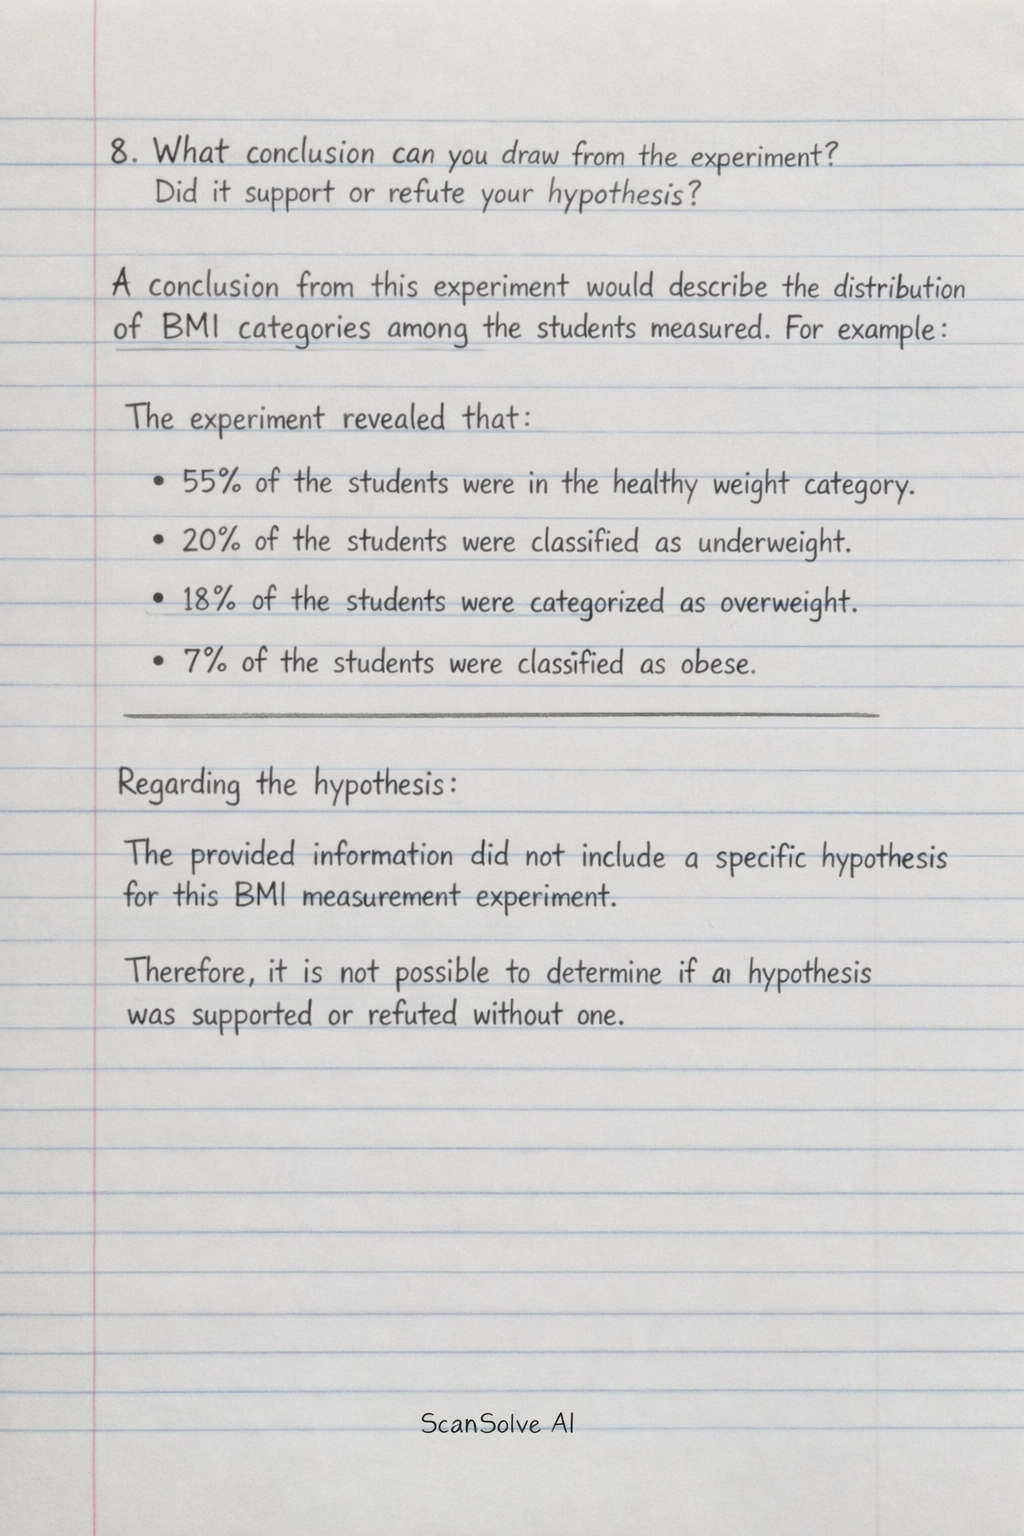 8. What conclusion can you draw from the experiment?
Did it support or refute your hypothesis?
A conclusion from this experiment would describe the distribution
of BMI categories among the students measured. For example:
The experiment revealed that:
• 55% of the students were in the healthy weight category.
• 20% of the students were classified as underweight.
• 18% of the students were categorized as overweight.
• 7% of the students were classified as obese.
Regarding the hypothesis:
The provided information did not include a specific hypothesis
for this BMI measurement experiment.
Therefore, it is not possible to determine if a hypothesis
was supported or refuted without one.
ScanSolve AI